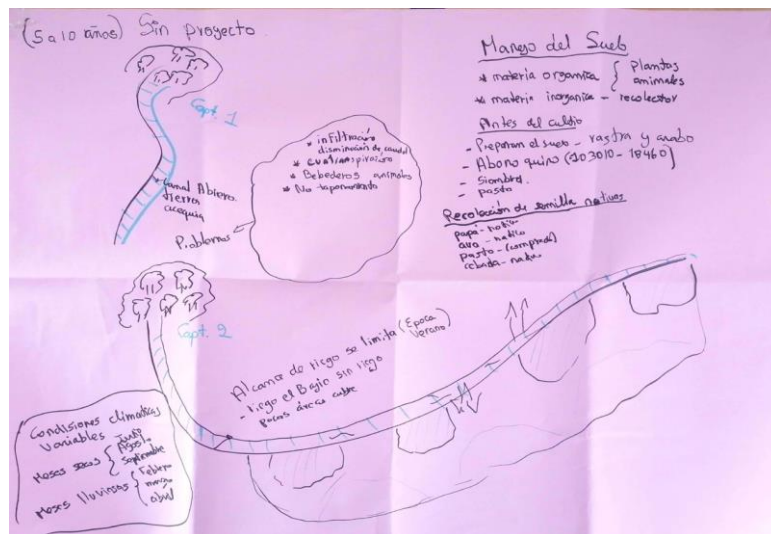 (5 a 10 años) Sin proyecto.
Capt. 1
Canal Abierto
tierra
acequia
Problemas
* infiltración
disminución de caudal
* evatranspiración
* Bebederos animales
* No taponamiento
Manejo del Suelo
* materia organica { plantas
animales
* materia inorganica - recolector
Antes del cultivo
- Preparan el suelo - rastra y arado
- Abono quimi (103010 - 18460)
- siembra.
- pasto
Recolección de semilla nativos
papa - nativa
- nativo
pasto - (comprada)
cebada - nativa
Capt. 2
Alcance de riego se limita (Epoca
Verano)
- riego el Bajio sin riego
pocas áreas cubre
Condisiones climaticas
Variables
Meses secos { Junio
Agosto
Septiembre
Meses lluviosos { Febrero
marzo
abril